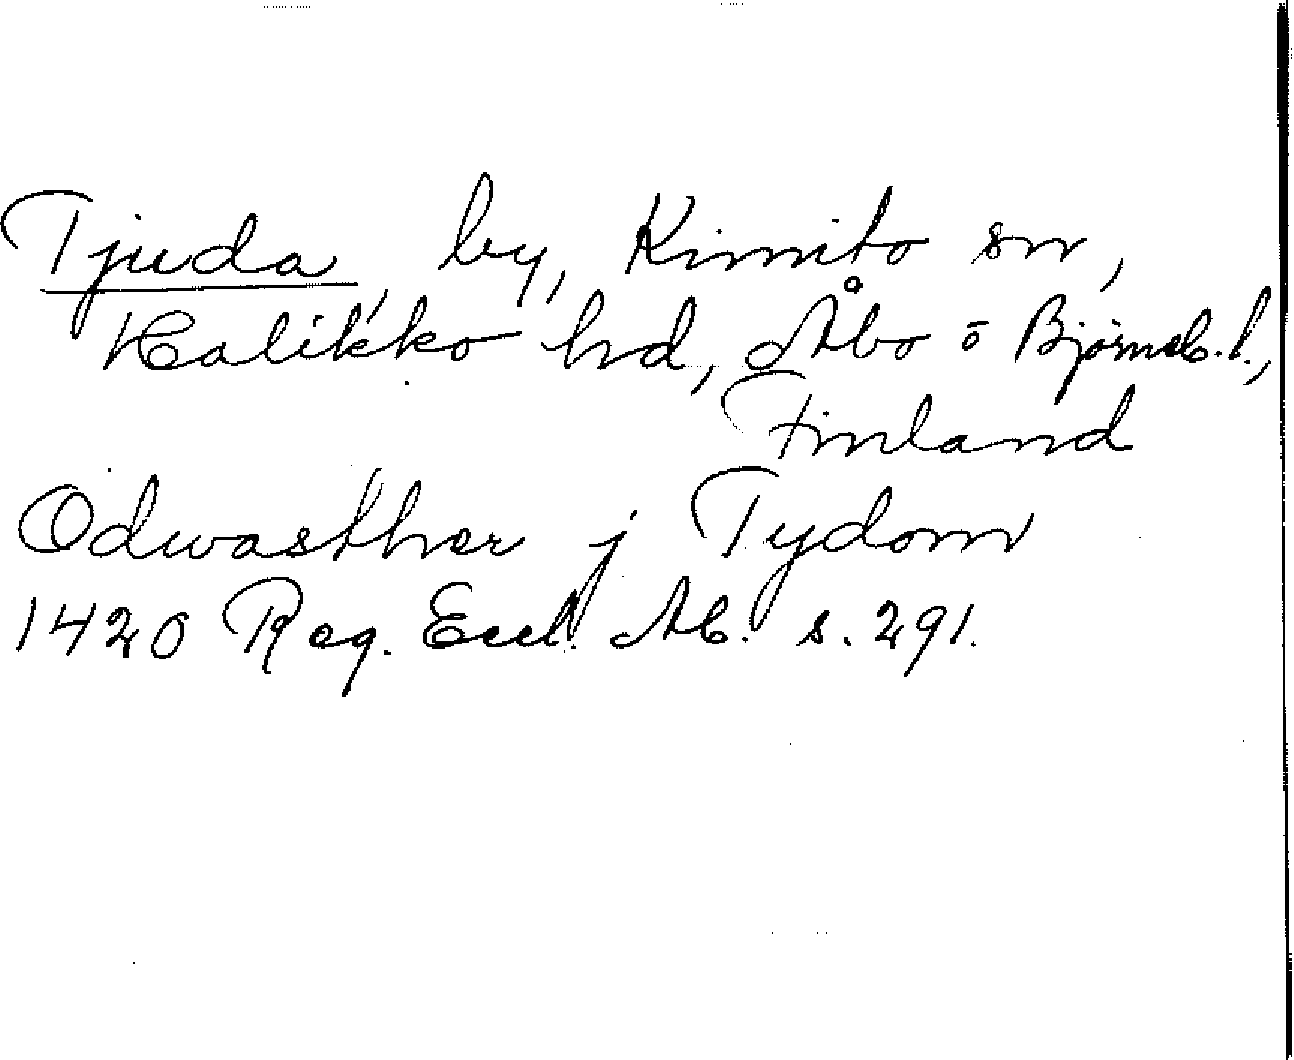 Tjuda, by, Kimito sn,
Halikko hd, Åbo o Björneb. l.,
Finland
Odwasther j Tydom
1420 Reg. Eccl. Ab. s. 291.